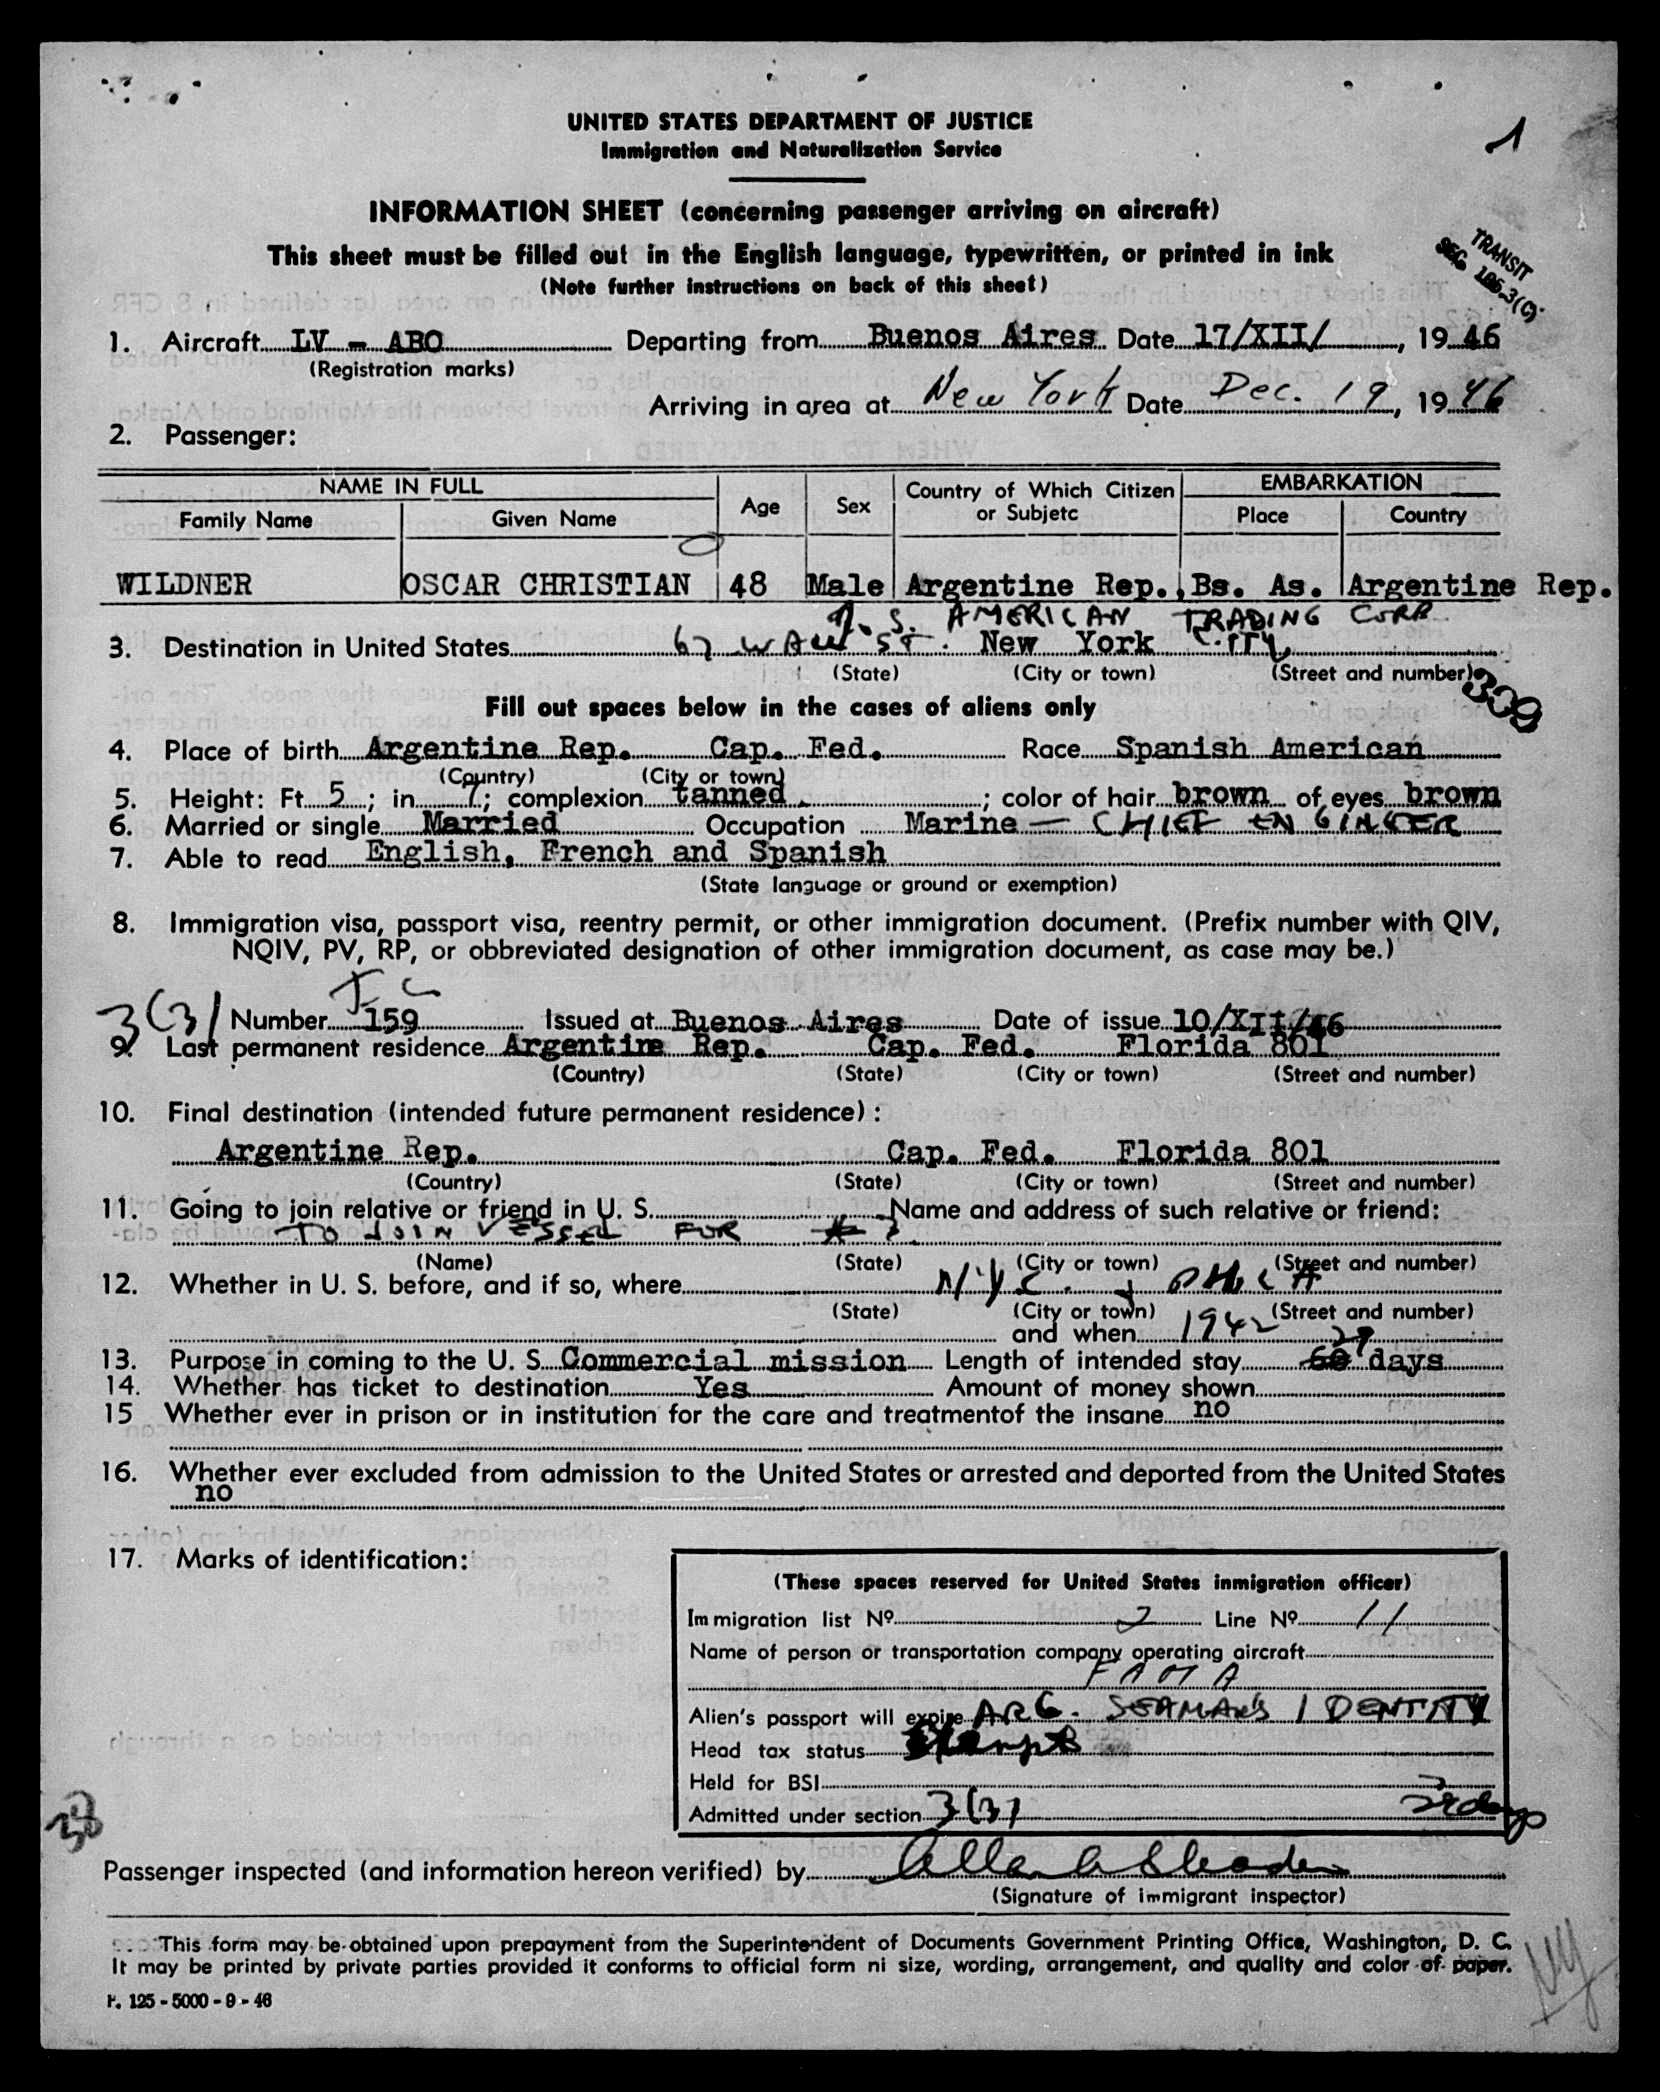 1
UNITED STATES DEPARTMENT OF JUSTICE
Immigration and Naturalization Service
INFORMATION SHEET (concerning passenger arriving on aircraft)
This sheet must be filled out in the English language, typewritten, or printed in ink
(Note further instructions on back of this sheet)
TRANSIT
SEC.
1. Aircraft LV - ABO Departing from Buenos Aires Date 17/XII/, 19 46
(Registration marks)
Arriving in area at New York Date Dec. 19, 19 46
2. Passenger:
NAME IN FULL Age Sex Country of Which Citizen or Subjetc EMBARKATION
Family Name Given Name Place Country
WILDNER OSCAR CHRISTIAN 48 Male Argentine Rep. Bs. As. Argentine Rep.
S. AMERICAN TRADING CORP.
3. Destination in United States 67 WALL ST. New York CITY
(State) (City or town) (Street and number)
309
Fill out spaces below in the cases of aliens only
4. Place of birth Argentine Rep. Cap. Fed. Race Spanish American
(Country) (City or town)
5. Height: Ft. 5; in. 7; complexion tanned; color of hair brown of eyes brown
6. Married or single Married Occupation Marine — CHIEF ENGINEER
7. Able to read English, French and Spanish
(State language or ground or exemption)
8. Immigration visa, passport visa, reentry permit, or other immigration document. (Prefix number with QIV,
NQIV, PV, RP, or obbreviated designation of other immigration document, as case may be.)
3(3) Number 159 Issued at Buenos Aires Date of issue 10/XII/46
9. Last permanent residence Argentine Rep. Cap. Fed. Florida 801
(Country) (State) (City or town) (Street and number)
10. Final destination (intended future permanent residence):
Argentine Rep. Cap. Fed. Florida 801
(Country) (State) (City or town) (Street and number)
11. Going to join relative or friend in U. S. Name and address of such relative or friend:
TO JOIN VESSEL FOR
(Name) (State) (City or town) (Street and number)
12. Whether in U. S. before, and if so, where N.Y.C. + PHILA
(State) (City or town) (Street and number)
and when 1942
13. Purpose in coming to the U. S. Commercial mission Length of intended stay 60 29 days
14. Whether has ticket to destination Yes Amount of money shown
15 Whether ever in prison or in institution for the care and treatmentof the insane no
16. Whether ever excluded from admission to the United States or arrested and deported from the United States
no
17. Marks of identification:
(These spaces reserved for United States inmigration officer)
Immigration list Nº 2 Line Nº 11
Name of person or transportation company operating aircraft
FAMA
Alien's passport will expire ARG. SEAMAN'S IDENTITY
Head tax status Exempt
Held for BSI
Admitted under section 3(3) 29 days
Passenger inspected (and information hereon verified) by
(Signature of immigrant inspector)
This form may be obtained upon prepayment from the Superintendent of Documents Government Printing Office, Washington, D. C.
It may be printed by private parties provided it conforms to official form ni size, wording, arrangement, and quality and color of paper.
F. 125 - 5000 - 9 - 46
NY